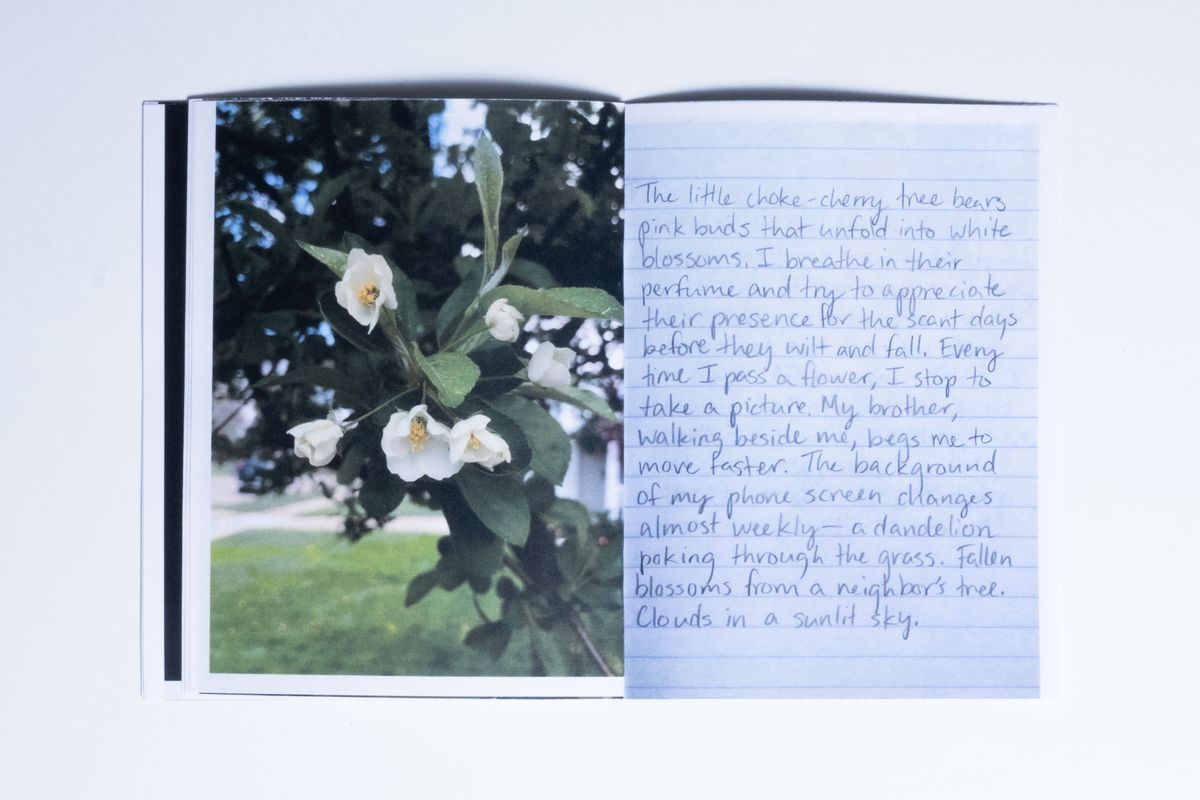 The little choke-cherry tree bears
pink buds that unfold into white
blossoms. I breathe in their
perfume and try to appreciate
their presence for the scant days
before they wilt and fall. Every
time I pass a flower, I stop to
take a picture. My brother,
walking beside me, begs me to
move faster. The background
of my phone screen changes
almost weekly — a dandelion
poking through the grass. Fallen
blossoms from a neighbor's tree.
Clouds in a sunlit sky.